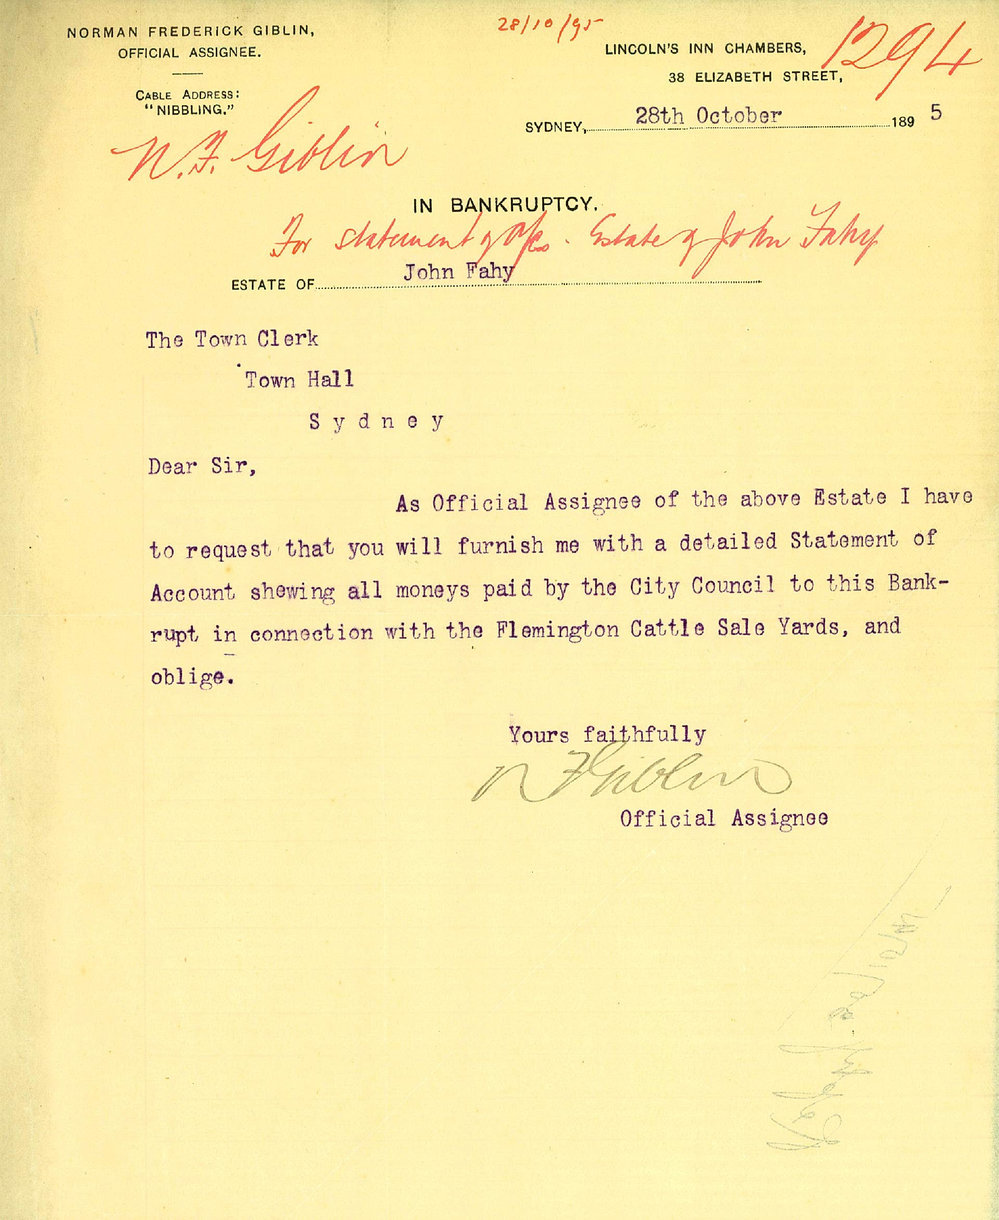 NORMAN FREDERICK GIBLIN,
OFFICIAL ASSIGNEE.
CABLE ADDRESS:
"NIBBLING."
28/10/95
LINCOLN'S INN CHAMBERS,
38 ELIZABETH STREET,
1294
SYDNEY, 28th October 1895
N. F. Giblin
IN BANKRUPTCY.
For statement of a/cs. Estate of John Fahy
ESTATE OF John Fahy
The Town Clerk
Town Hall
Sydney
Dear Sir,
As Official Assignee of the above Estate I have
to request that you will furnish me with a detailed Statement of
Account shewing all moneys paid by the City Council to this Bank-
rupt in connection with the Flemington Cattle Sale Yards, and
oblige.
Yours faithfully
N F Giblin
Official Assignee